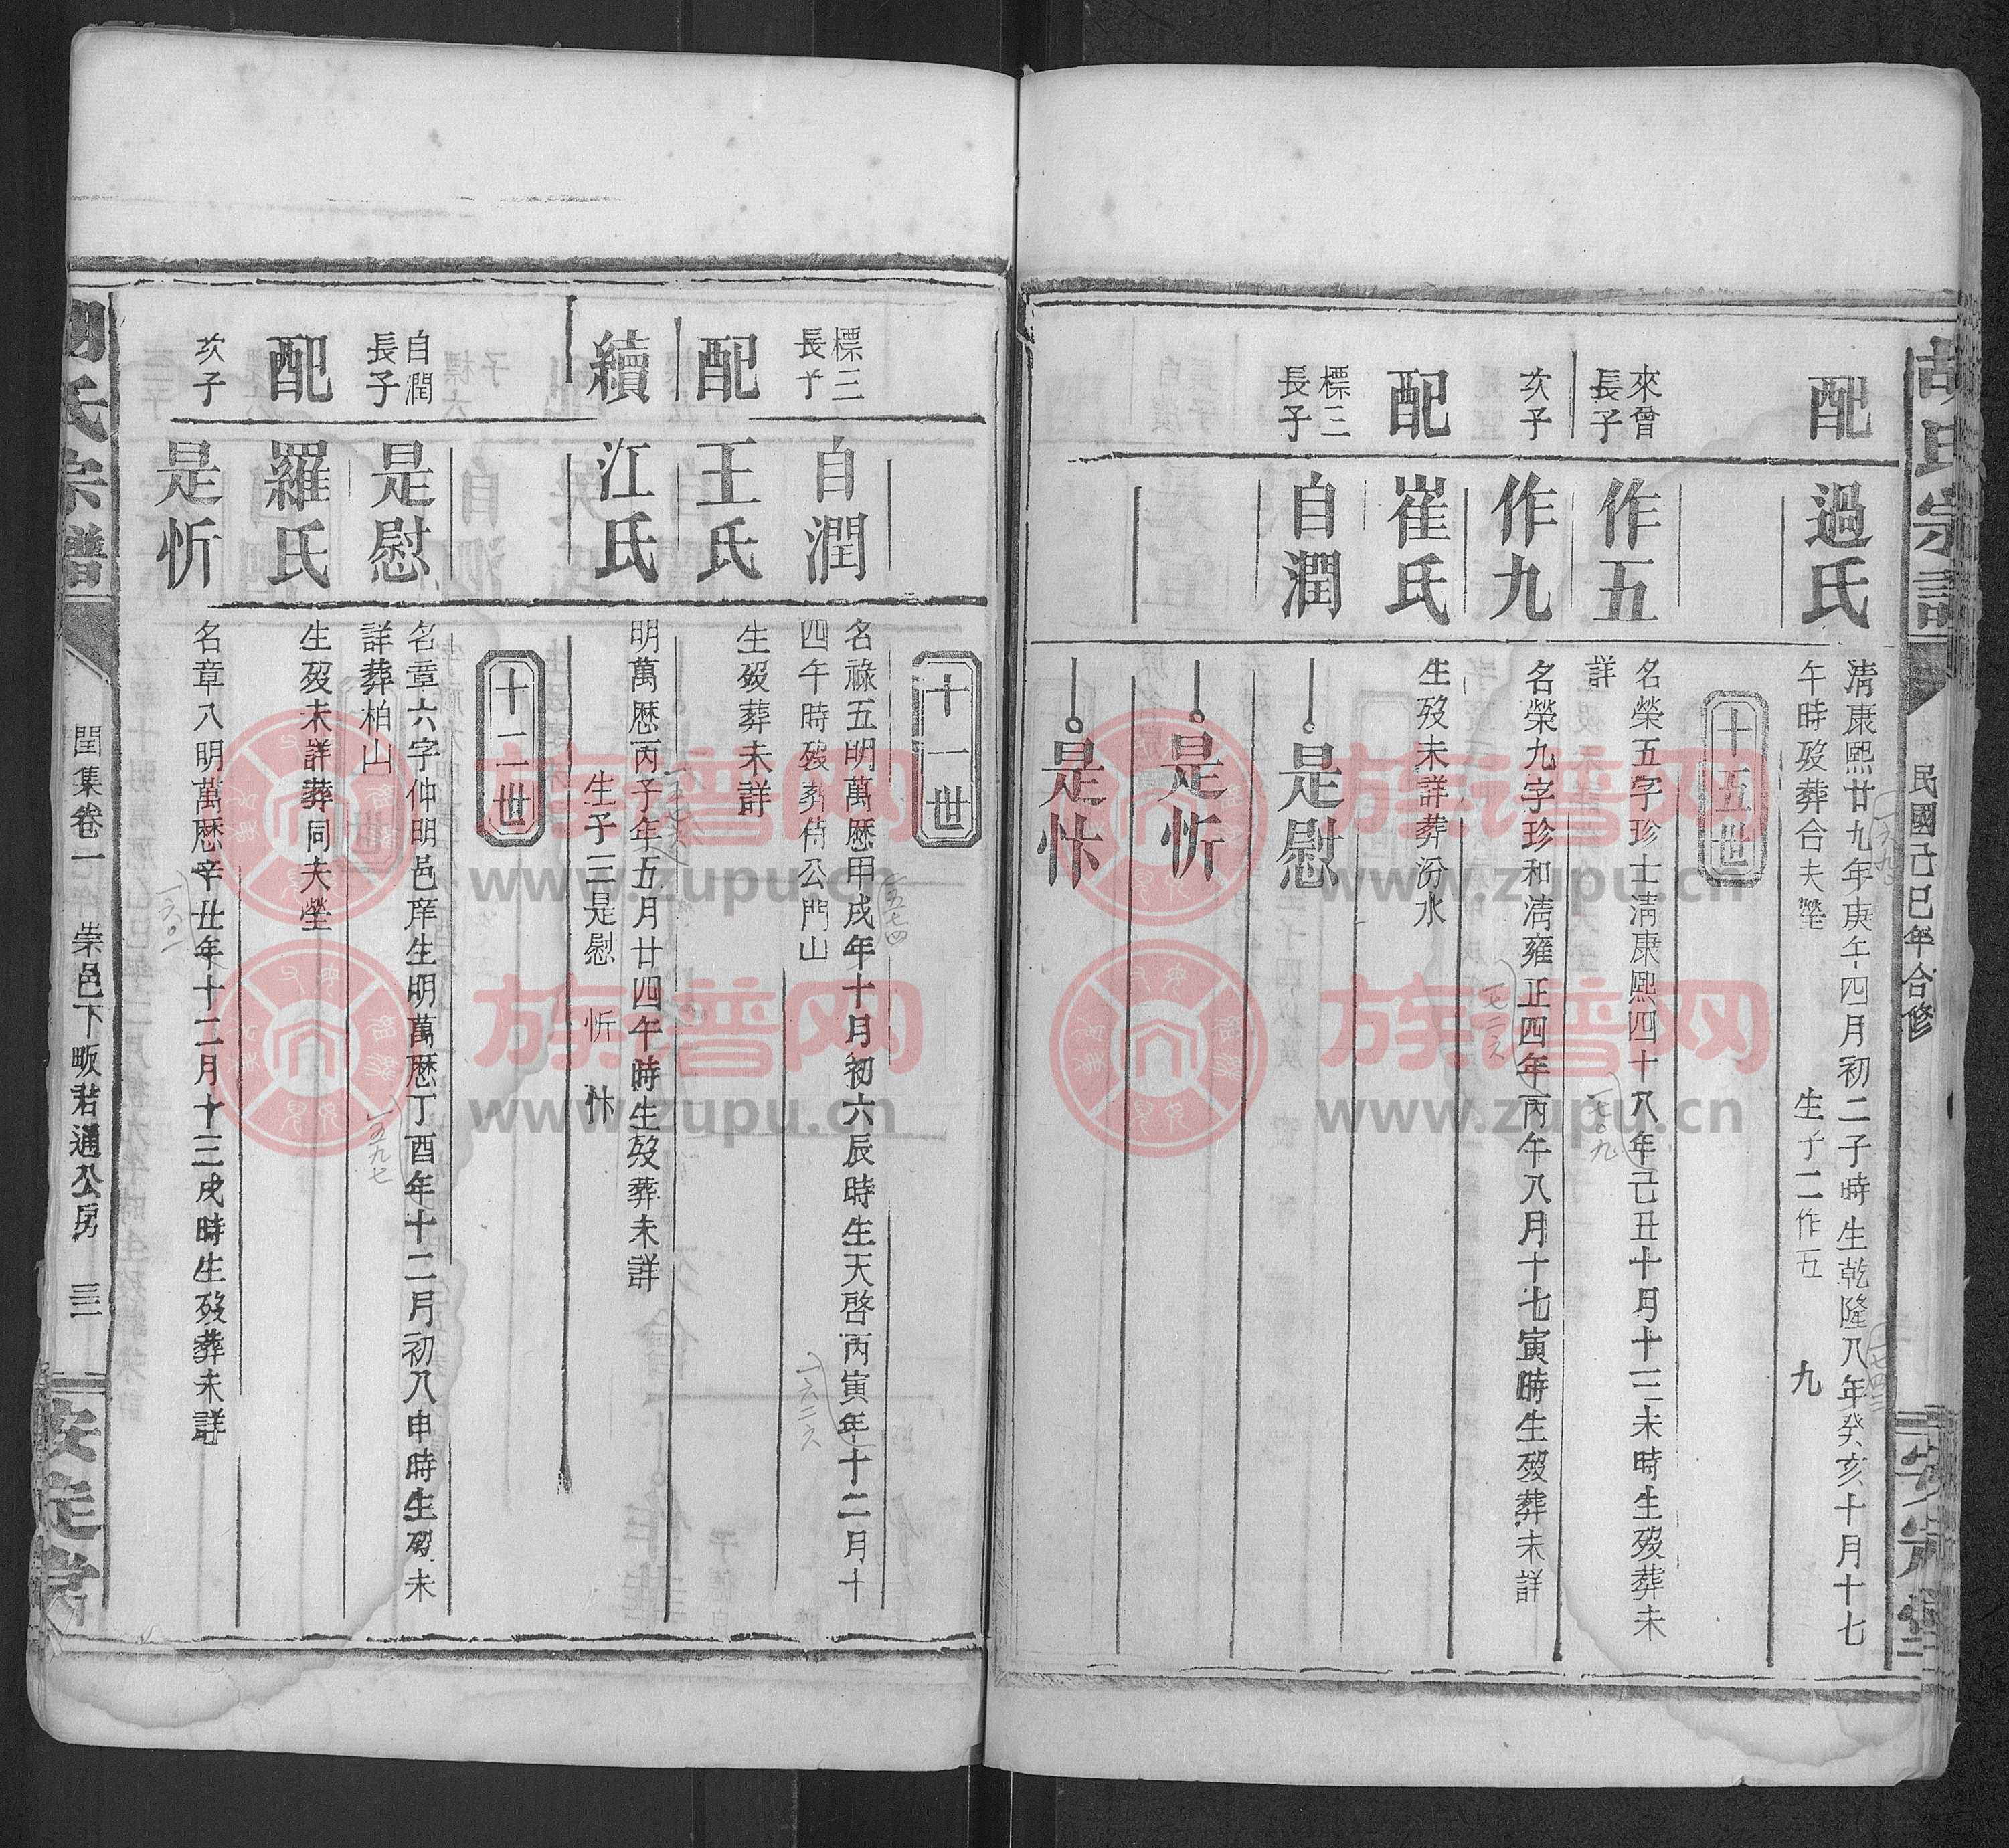 胡氏宗譜
民國己巳年合修
安定堂
配
過氏
清康熙廿九年庚午四月初二子時生乾隆八年癸亥十月十七
午時歿葬合夫塋
生子二作五
九
一六九〇
一七四三
十五世
來曾
長子
作五
名榮五字珍士清康熙四十八年己丑十月十二未時生歿葬未
詳
一七〇九
次子
作九
名榮九字珍和清雍正四年丙午八月十七寅時生歿葬未詳
一七二六
配
崔氏
生歿未詳葬汾水
標三
長子
自潤
是慰
是忻
是忭
十一世
標三
長子
自潤
名祿五明萬歷甲戌年十月初六辰時生天啓丙寅年十二月十
四午時歿葬侍公門山
一五七四
一六二六
配
王氏
生歿葬未詳
續
江氏
明萬歷丙子年五月廿四午時生歿葬未詳
生子三是慰
忻
忭
十二世
自潤
長子
是慰
名章六字仲明邑庠生明萬歷丁酉年十二月初八申時生歿未
詳葬柏山
一五九七
配
羅氏
生歿未詳葬同夫塋
次子
是忻
名章八明萬歷辛丑年十二月十三戌時生歿葬未詳
一六〇一
胡氏宗譜
閏集卷一
崇邑下畈若通公房
三三
安定堂
族谱网
www.zupu.cn
族谱网
www.zupu.cn
族谱网
www.zupu.cn
族谱网
www.zupu.cn